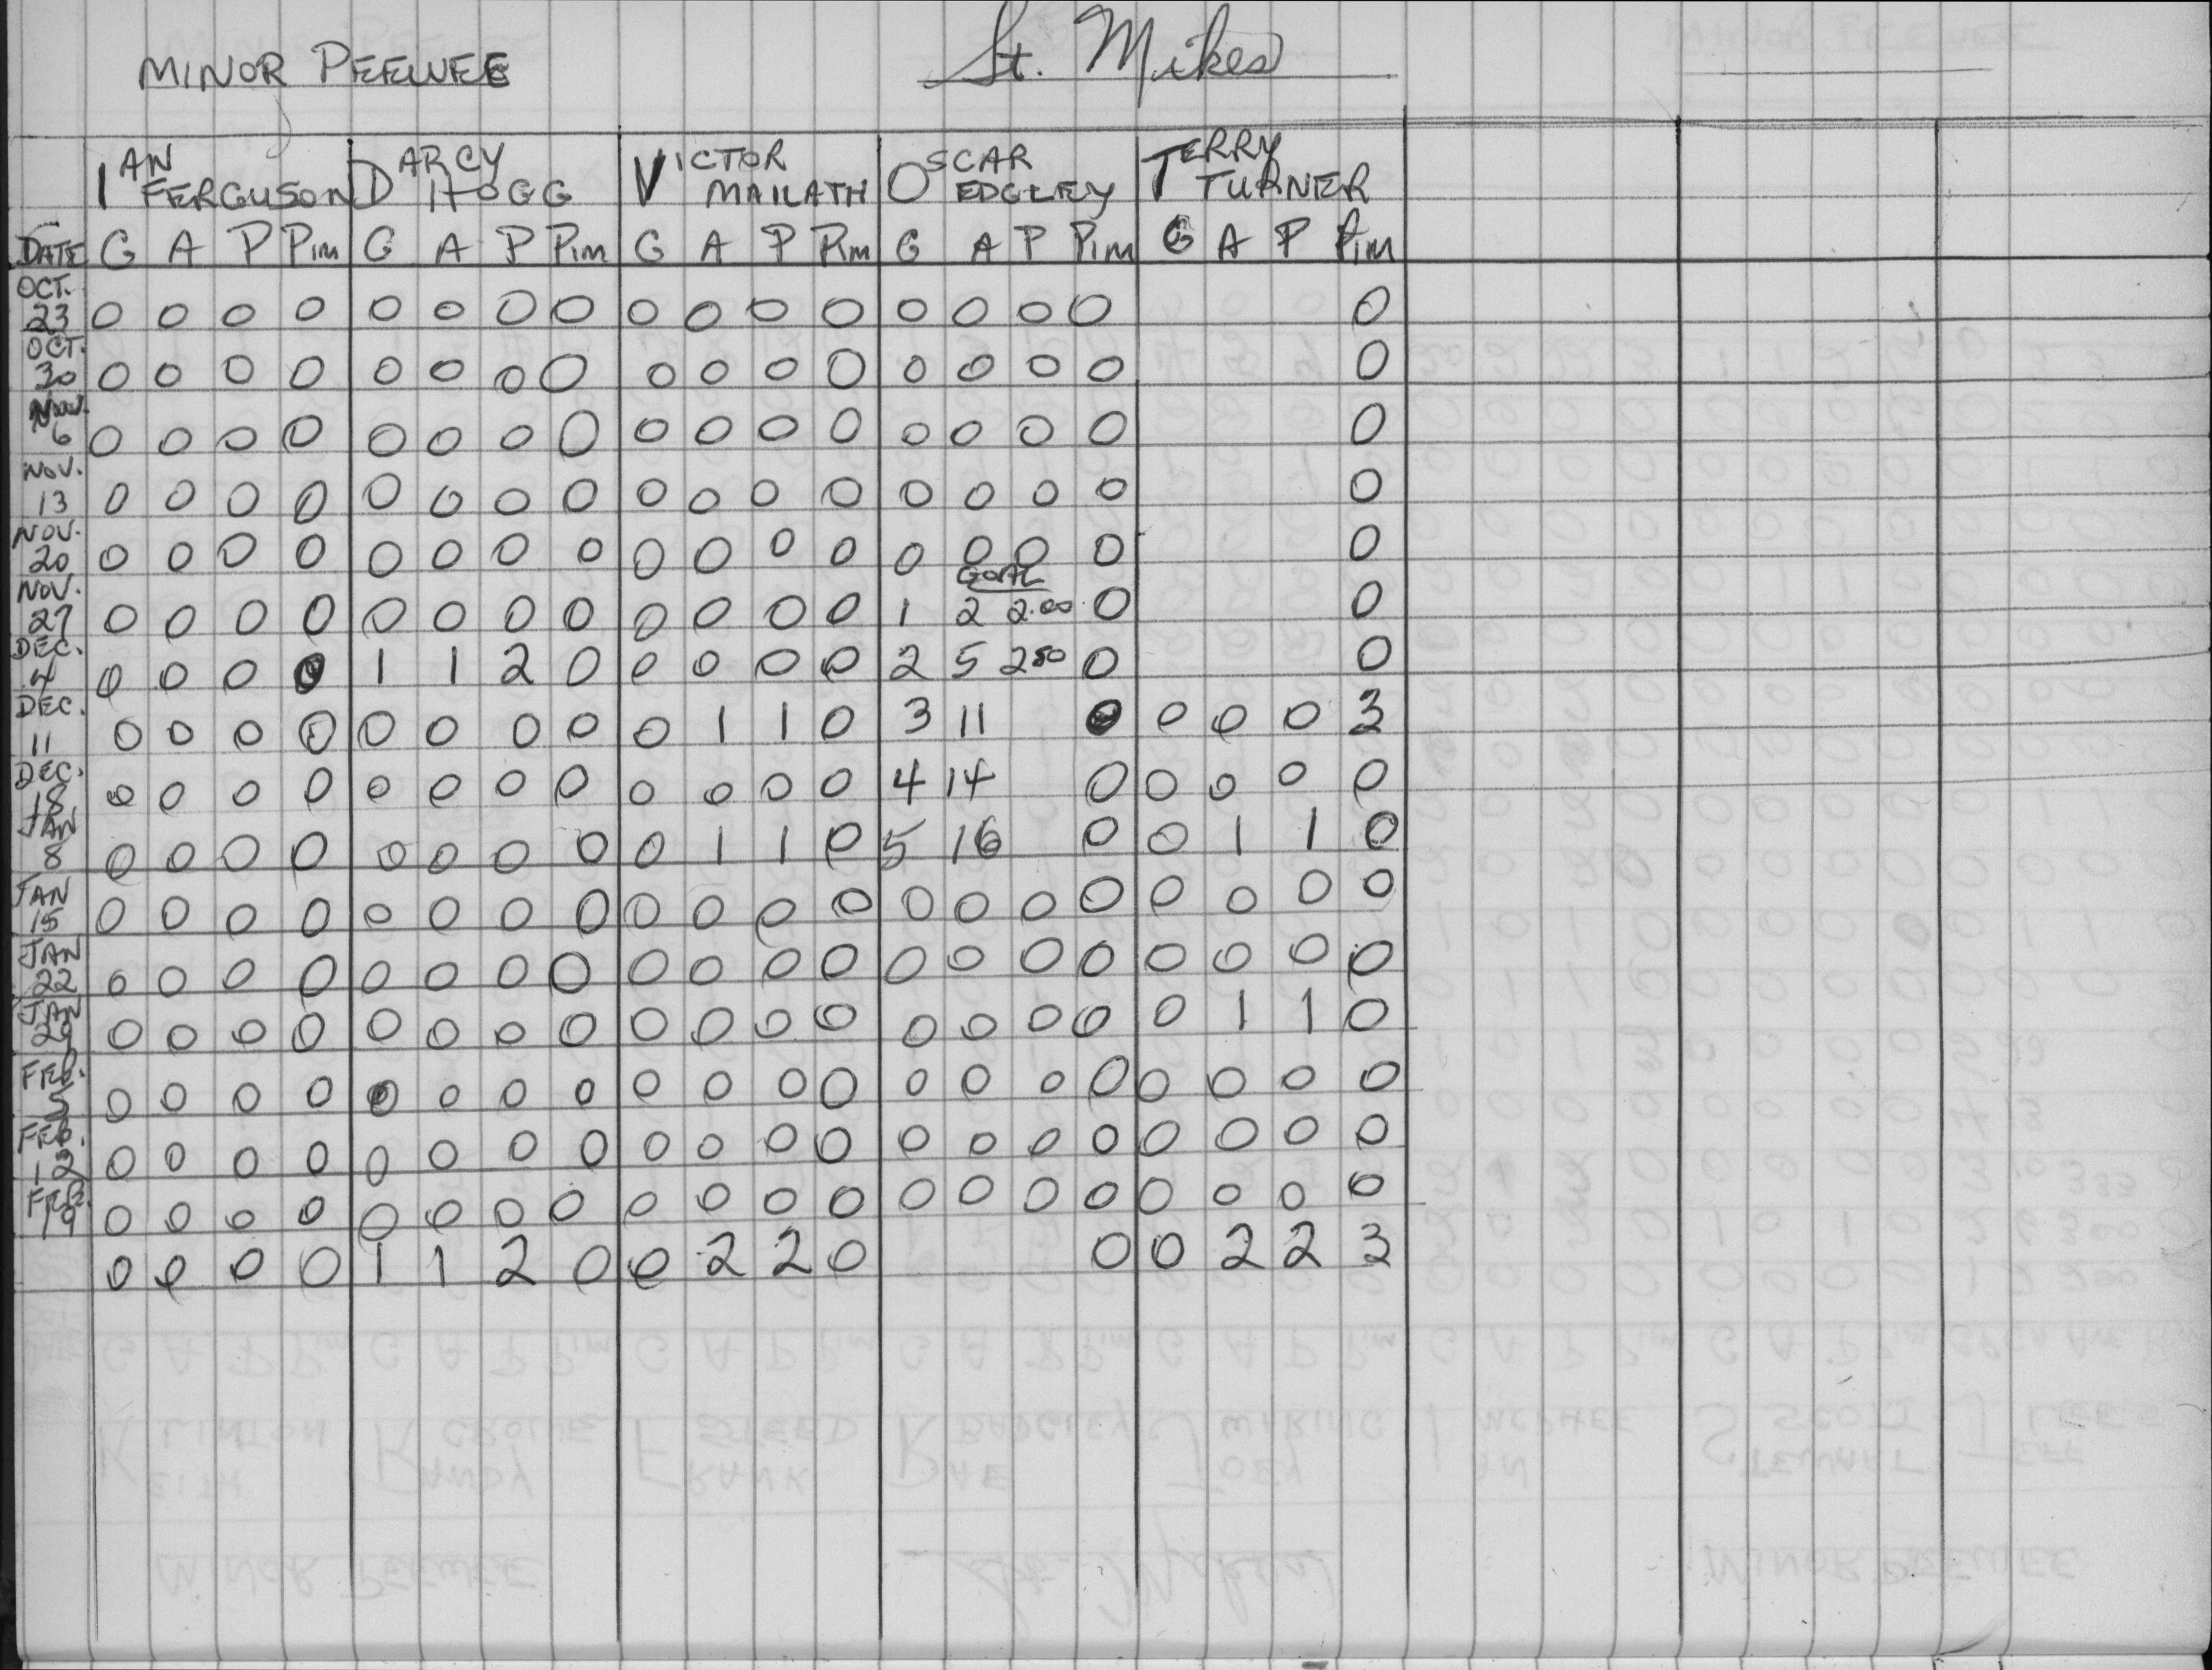 MINOR PEEWEE St. Mikes
IAN FERGUSON DARCY HOGG VICTOR MAILATH OSCAR EDGLEY TERRY TURNER
DATE G A P PIM G A P PIM G A P PIM G A P PIM G A P PIM
OCT. 23 0 0 0 0 0 0 0 0 0 0 0 0 0 0 0 0 0
OCT. 30 0 0 0 0 0 0 0 0 0 0 0 0 0 0 0 0 0
NOV. 6 0 0 0 0 0 0 0 0 0 0 0 0 0 0 0 0 0
NOV. 13 0 0 0 0 0 0 0 0 0 0 0 0 0 0 0 0 0
NOV. 20 0 0 0 0 0 0 0 0 0 0 0 0 0 0 0 0 0
GOAL
NOV. 27 0 0 0 0 0 0 0 0 0 0 0 0 1 2 2.00 0 0
DEC. 4 0 0 0 0 1 1 2 0 0 0 0 0 2 5 2 50 0 0
DEC. 11 0 0 0 0 0 0 0 0 0 1 1 0 3 11 0 0 0 0 3
DEC. 18 0 0 0 0 0 0 0 0 0 0 0 0 4 14 0 0 0 0 0
JAN 8 0 0 0 0 0 0 0 0 0 1 1 0 5 16 0 0 1 1 0
JAN 15 0 0 0 0 0 0 0 0 0 0 0 0 0 0 0 0 0 0 0 0
JAN 22 0 0 0 0 0 0 0 0 0 0 0 0 0 0 0 0 0 0 0 0
JAN 29 0 0 0 0 0 0 0 0 0 0 0 0 0 0 0 0 0 1 1 0
FEB. 5 0 0 0 0 0 0 0 0 0 0 0 0 0 0 0 0 0 0 0 0
FEB. 12 0 0 0 0 0 0 0 0 0 0 0 0 0 0 0 0 0 0 0 0
FEB. 19 0 0 0 0 0 0 0 0 0 0 0 0 0 0 0 0 0 0 0 0
0 0 0 0 1 1 2 0 0 2 2 0 0 0 2 2 3